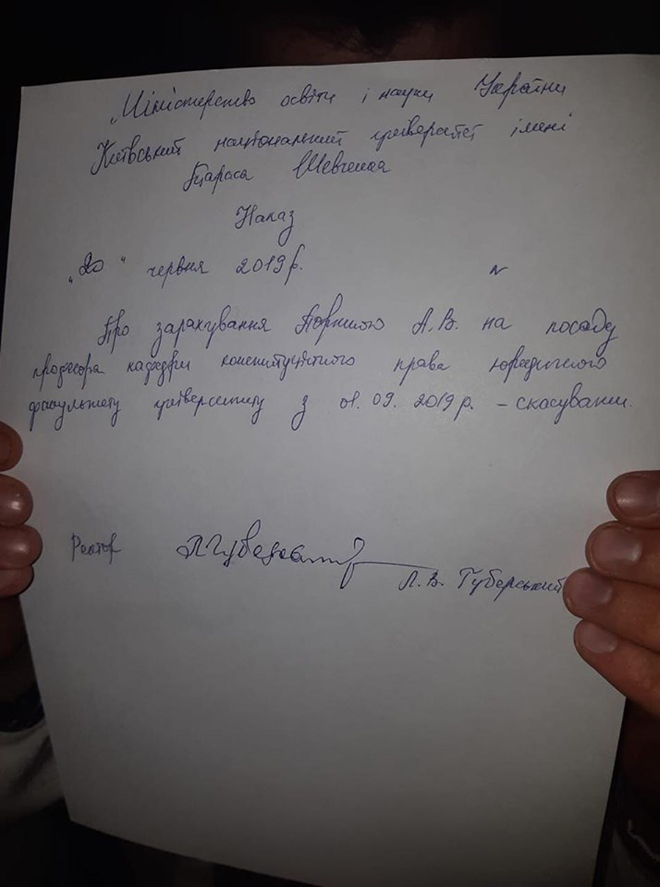 „Міністерство освіти і науки України
Київський національний університет імені
Тараса Шевченка
Наказ
„20“ червня 2019 р.                    N
Про зарахування Портнова А.В. на посаду
професора кафедри конституційного права юридичного
факультету університету з 01.09.2019 р. – скасувати.
Ректор
Л.В. Губерський